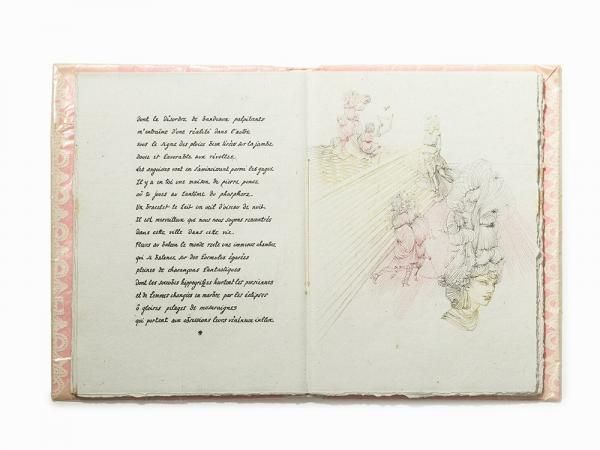 dont le désordre de bandeaux palpitants
m'entraîne d'une réalité dans l'autre
sous le signe des pluies bien lisses sur la jambe
douce et favorable aux révoltes.
Les angoisses vont en s'amincissant parmi les
Il y a en toi une maison de pierre ponce
où tu joues au fantôme du phosphore.
Un bracelet te fait un œil d'oiseau de nuit.
Il est merveilleux que nous nous soyons rencontrés
dans cette ville dans cette vie.
au balcon le monde reste une immense chambre
qui se balance sur des formules égarées
pleines de charançons fantastiques
dont les succubes hippogriffes heurtent les persiennes
et de femmes changées en marbre par les éclipses
ô gloires pilages de musaraignes
qui portent aux obsessions leurs vénéneux